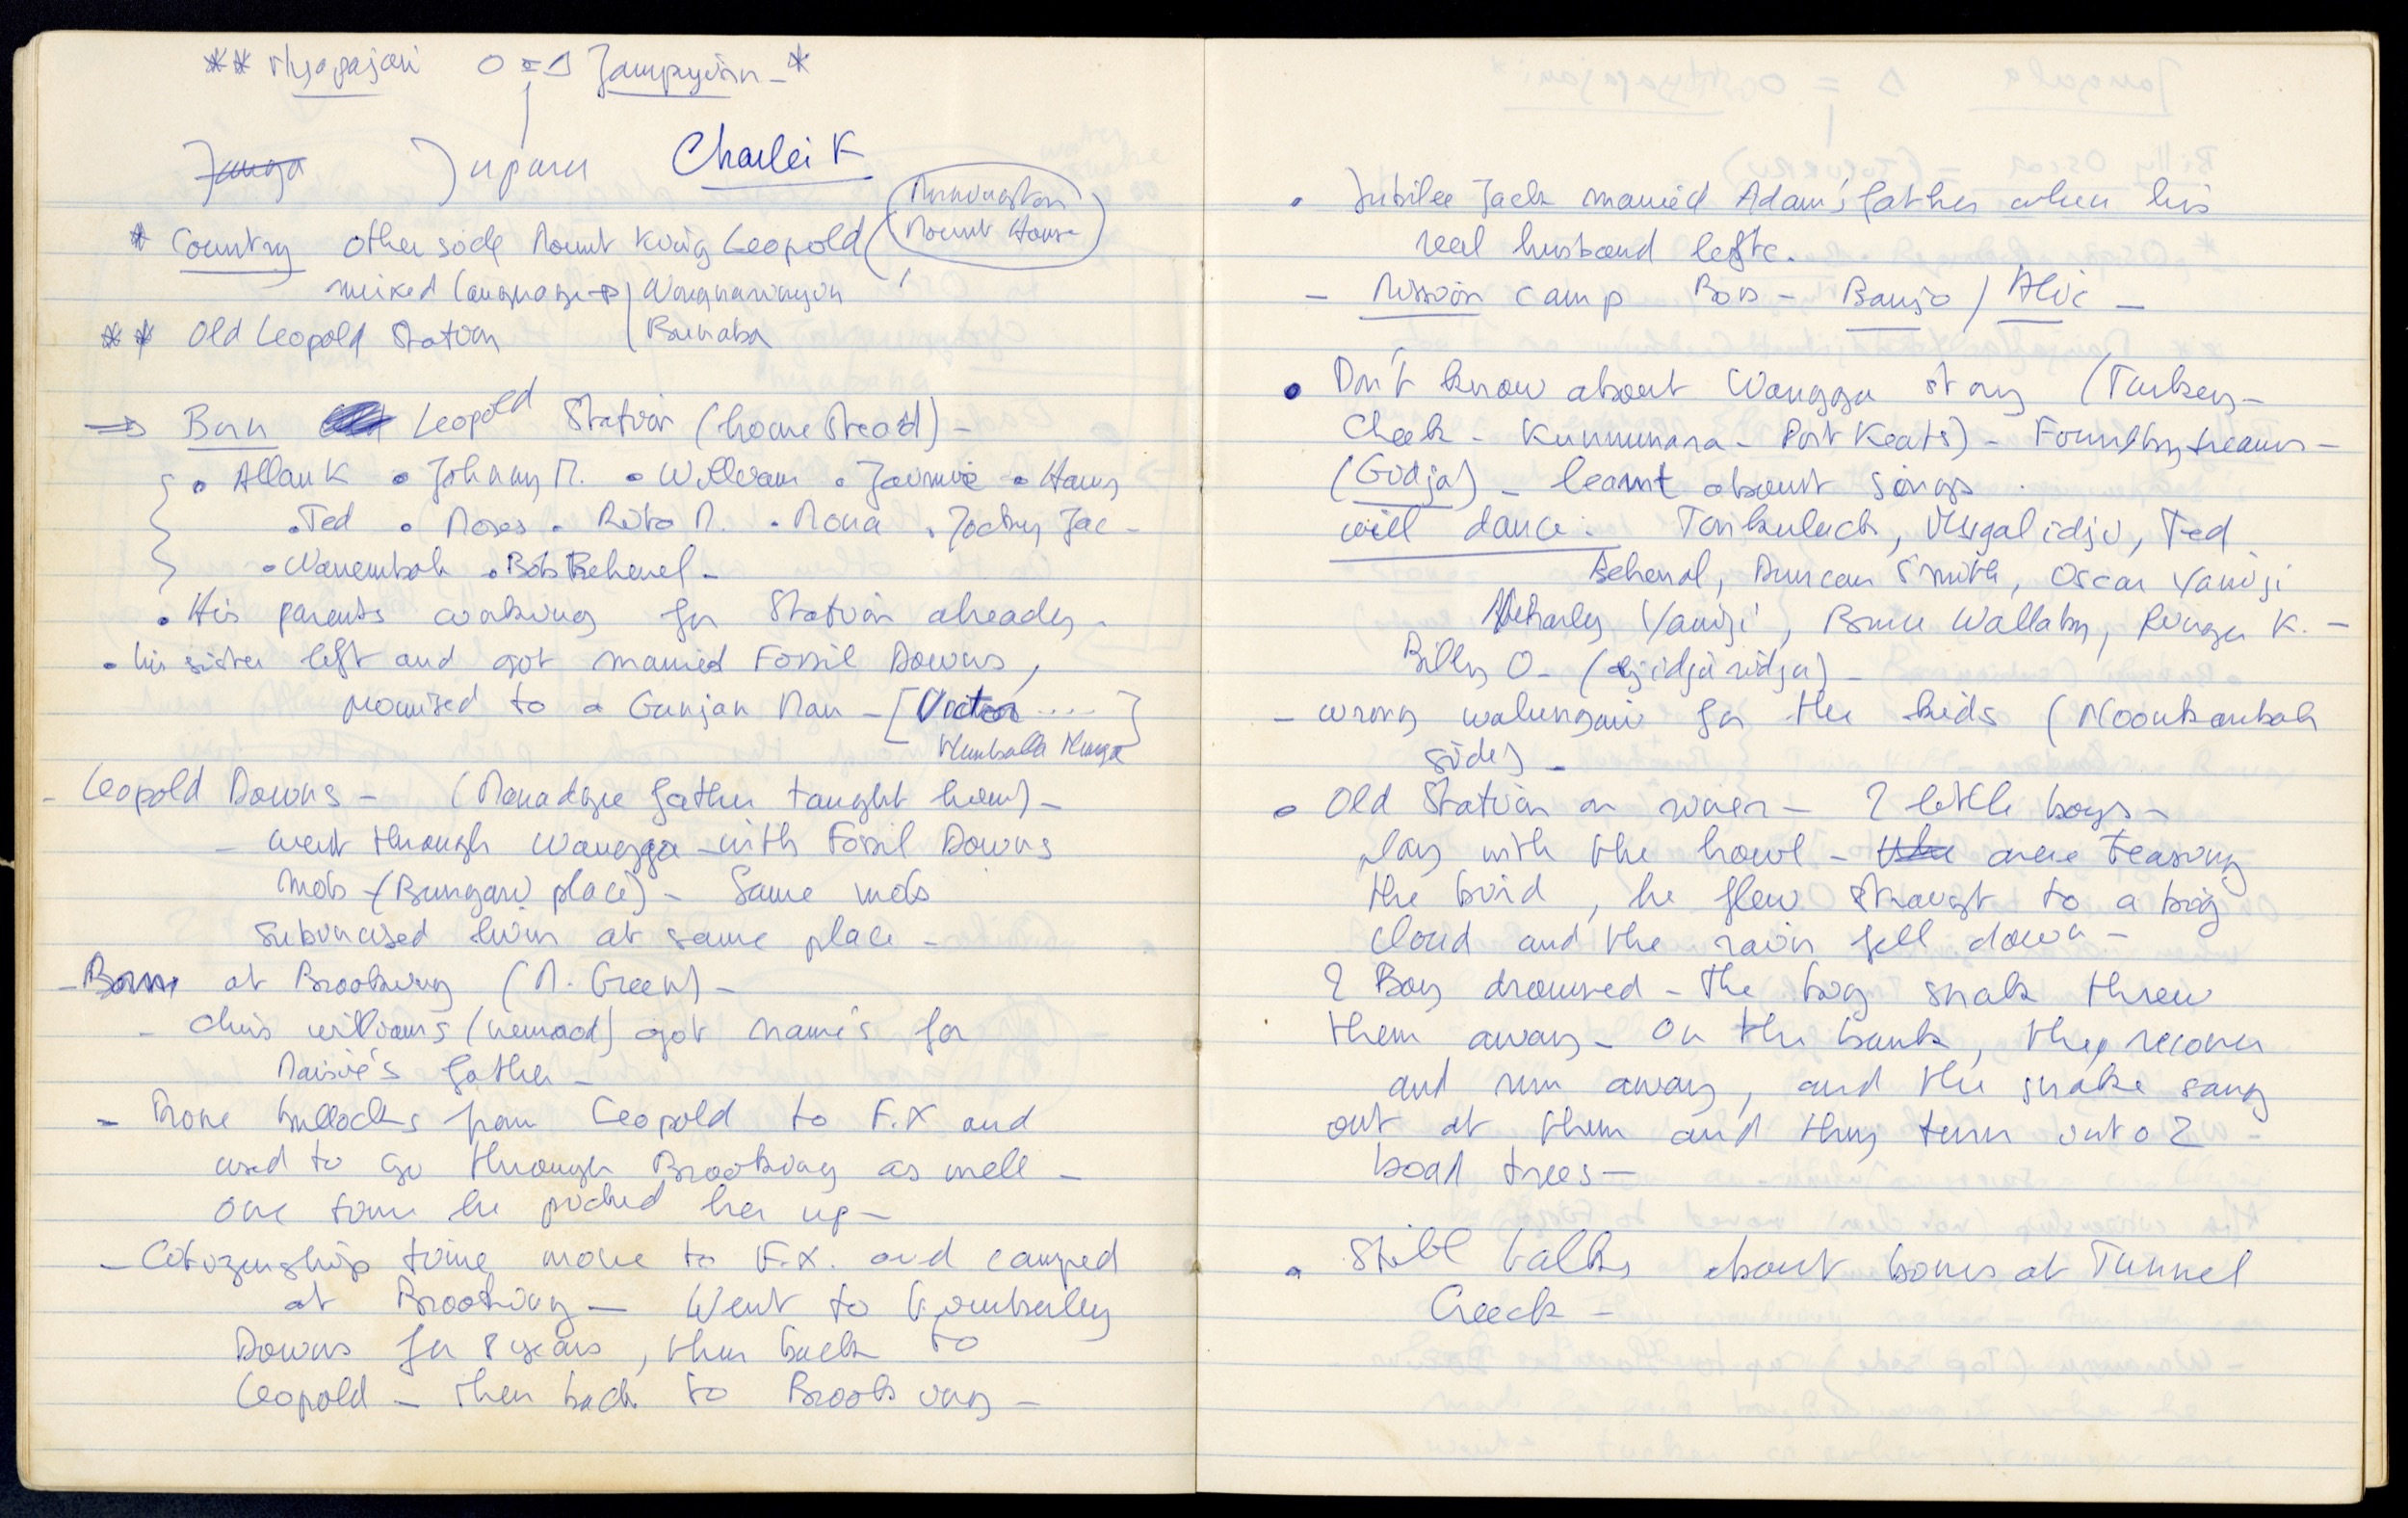 ** Nyapajari O = Δ Jampyirin - *
Janga Juparu Charlei K
Mount House
* Country other side Mount King Leopold
mixed language → Wangnarinyin
** Old Leopold Station Bunaba
⇒ Born Leopold Station (homestead) -
• Allan K • Johnny M. • William • Jaimie • Harry
• Ted • Moses • Rita M. • Mona • Jocky Jac -
• Wanembah • Bob Behenel -
• His parents working for Station already -
• his sister left and got married Fossil Downs,
promised to a Gunjan Man - [Victor ....
- Leopold Downs - (Monadgee father taught him) -
- went through Wangga with Fossil Downs
mob - (Bungari place) - Same mob
subincised him at same place -
- Born at Brooking (M. Green) -
- Chris williams (nemaod) got name's for
Maisie's father -
- Drove bullocks from Leopold to F.X and
used to go through Brooking as well -
one time he picked her up -
- Citizenship time move to F.X. and camped
at Brooking - Went to Kimberley
Downs for 8 years, then back to
Leopold - then back to Brooking -
• Jubilee Jack married Adam's father when his
real husband lefte.
- Mission camp Boss - Banjo / Alic -
• Don't know about Wangga story (Turkey -
Cheek - Kununnara - Port Keats) - Found by dreams -
(Gidja) - learnt about songs.
will dance: Tarikuluck, Ted
Behenal, Duncan Smith, Oscar Yamiji
Charley Yamiji, Bruce Wallaby, Ringer K. -
Billy O - (djidjaridja) -
- wrong walungari for the kids (Noonkanbah
side) -
• Old Station on river - 2 little boys -
play with the howl - were teasing
the bird, he flew straight to a big
cloud and the rain fell down -
2 Boy drowned - the big snake threw
them away - On the bank, they recover
and run away, and the snake sang
out at them and they turn into 2 -
boad trees -
• Still talks about bones at Tunnel
Creeck -